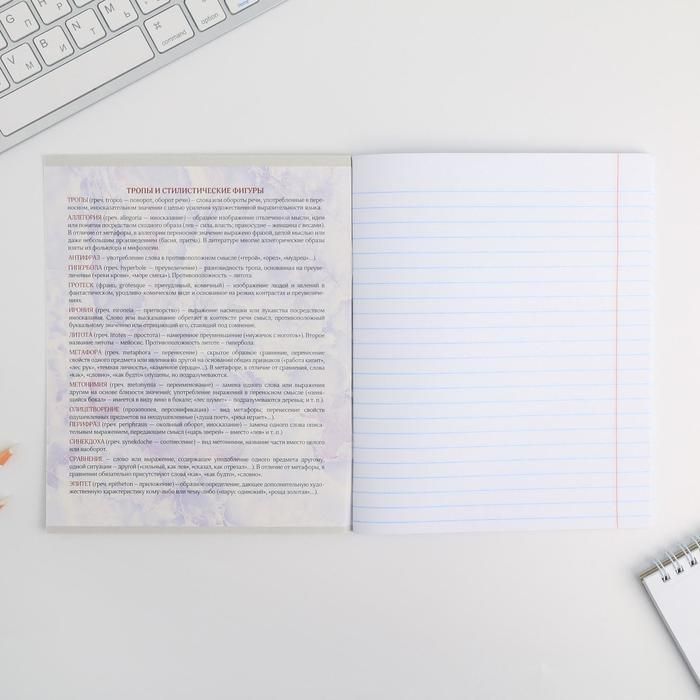 G П
H Р
V М
B И
N Т
M Ь
⌘ command
option
ТРОПЫ И СТИЛИСТИЧЕСКИЕ ФИГУРЫ
ТРОПЫ (греч. tropos — поворот, оборот речи) – слова или обороты речи, употребленные в пере-
носном, иносказательном значении с целью усиления художественной выразительности языка.
АЛЛЕГОРИЯ (греч. allegoria — иносказание) – образное изображение отвлеченной мысли, идеи
или понятия посредством сходного образа (лев – сила, власть; правосудие – женщина с весами).
В отличие от метафоры, в аллегории переносное значение выражено фразой, целой мыслью или
даже небольшим произведением (басня, притча). В литературе многие аллегорические образы
взяты из фольклора и мифологии.
АНТИФРАЗ – употребление слова в противоположном смысле («герой», «орел», «мудрец»...).
ГИПЕРБОЛА (греч. hyperbole — преувеличение) – разновидность тропа, основанная на преуве-
личении («реки крови», «море смеха»). Противоположность – литота.
ГРОТЕСК (франц. grotesque — причудливый, комичный) – изображение людей и явлений в
фантастическом, уродливо-комическом виде и основанное на резких контрастах и преувеличе-
ниях.
ИРОНИЯ (греч. eironeia — притворство) – выражение насмешки или лукавства посредством
иносказания. Слово или высказывание обретает в контексте речи смысл, противоположный
буквальному значению или отрицающий его, ставящий под сомнение.
ЛИТОТА (греч. litotes — простота) – намеренное преуменьшение («мужичок с ноготок»). Второе
название литоты – мейосис. Противоположность литоте – гипербола.
МЕТАФОРА (греч. metaphora — перенесение) – скрытое образное сравнение, перенесение
свойств одного предмета или явления на другой на основании общих признаков («работа кипит»,
«лес рук», «темная личность», «каменное сердце»...). В метафоре, в отличие от сравнения, слова
«как», «словно», «как будто» опущены, но подразумеваются.
МЕТОНИМИЯ (греч. metonymia — переименование) – замена одного слова или выражения
другим на основе близости значений; употребление выражений в переносном смысле («пеня-
щийся бокал» – имеется в виду вино в бокале; «лес шумит» – подразумеваются деревья; и т. п.).
ОЛИЦЕТВОРЕНИЕ (прозопопея, персонификация) – вид метафоры; перенесение свойств
одушевленных предметов на неодушевленные («душа поет», «река играет»...).
ПЕРИФРАЗ (греч. periphrasis — окольный оборот, иносказание) – замена одного слова описа-
тельным выражением, передающим смысл («царь зверей» – вместо «лев» и т. п.)
СИНЕКДОХА (греч. synekdoche — соотнесение) – вид метонимии, название части вместо целого
или наоборот.
СРАВНЕНИЕ – слово или выражение, содержащее уподобление одного предмета другому,
одной ситуации – другой («сильный, как лев», «сказал, как отрезал»...). В отличие от метафоры, в
сравнении обязательно присутствуют слова «как», «как будто», «словно».
ЭПИТЕТ (греч. epitheton — приложение) – образное определение, дающее дополнительную худо-
жественную характеристику кому-либо или чему-либо («парус одинокий», «роща золотая»...).